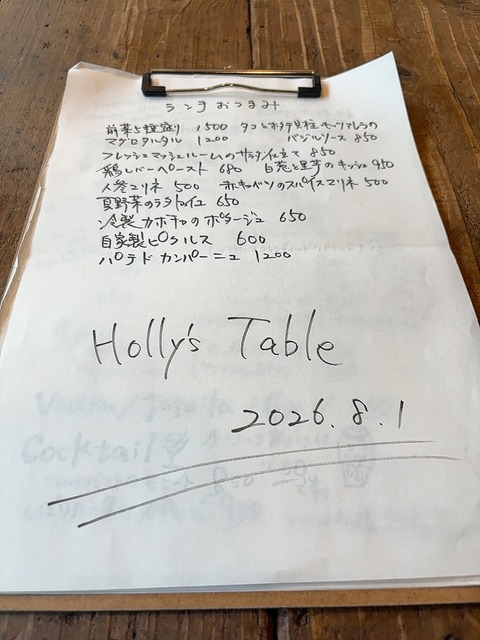 ランチおつまみ
前菜5種盛り 1500 タコとホタテ貝柱モッツァレラの
マグロタルタル 1200 バジルソース 850
フレッシュマッシュルームのサラダ仕立て 850
鶏レバーペースト 680 白葱と里芋のキッシュ 950
人参マリネ 500 赤キャベツのスパイスマリネ 500
夏野菜のラタトゥイユ 650
冷製カボチャのポタージュ 650
自家製ピクルス 600
パテドカンパーニュ 1200
Holly's Table
2026.8.1
Cocktail